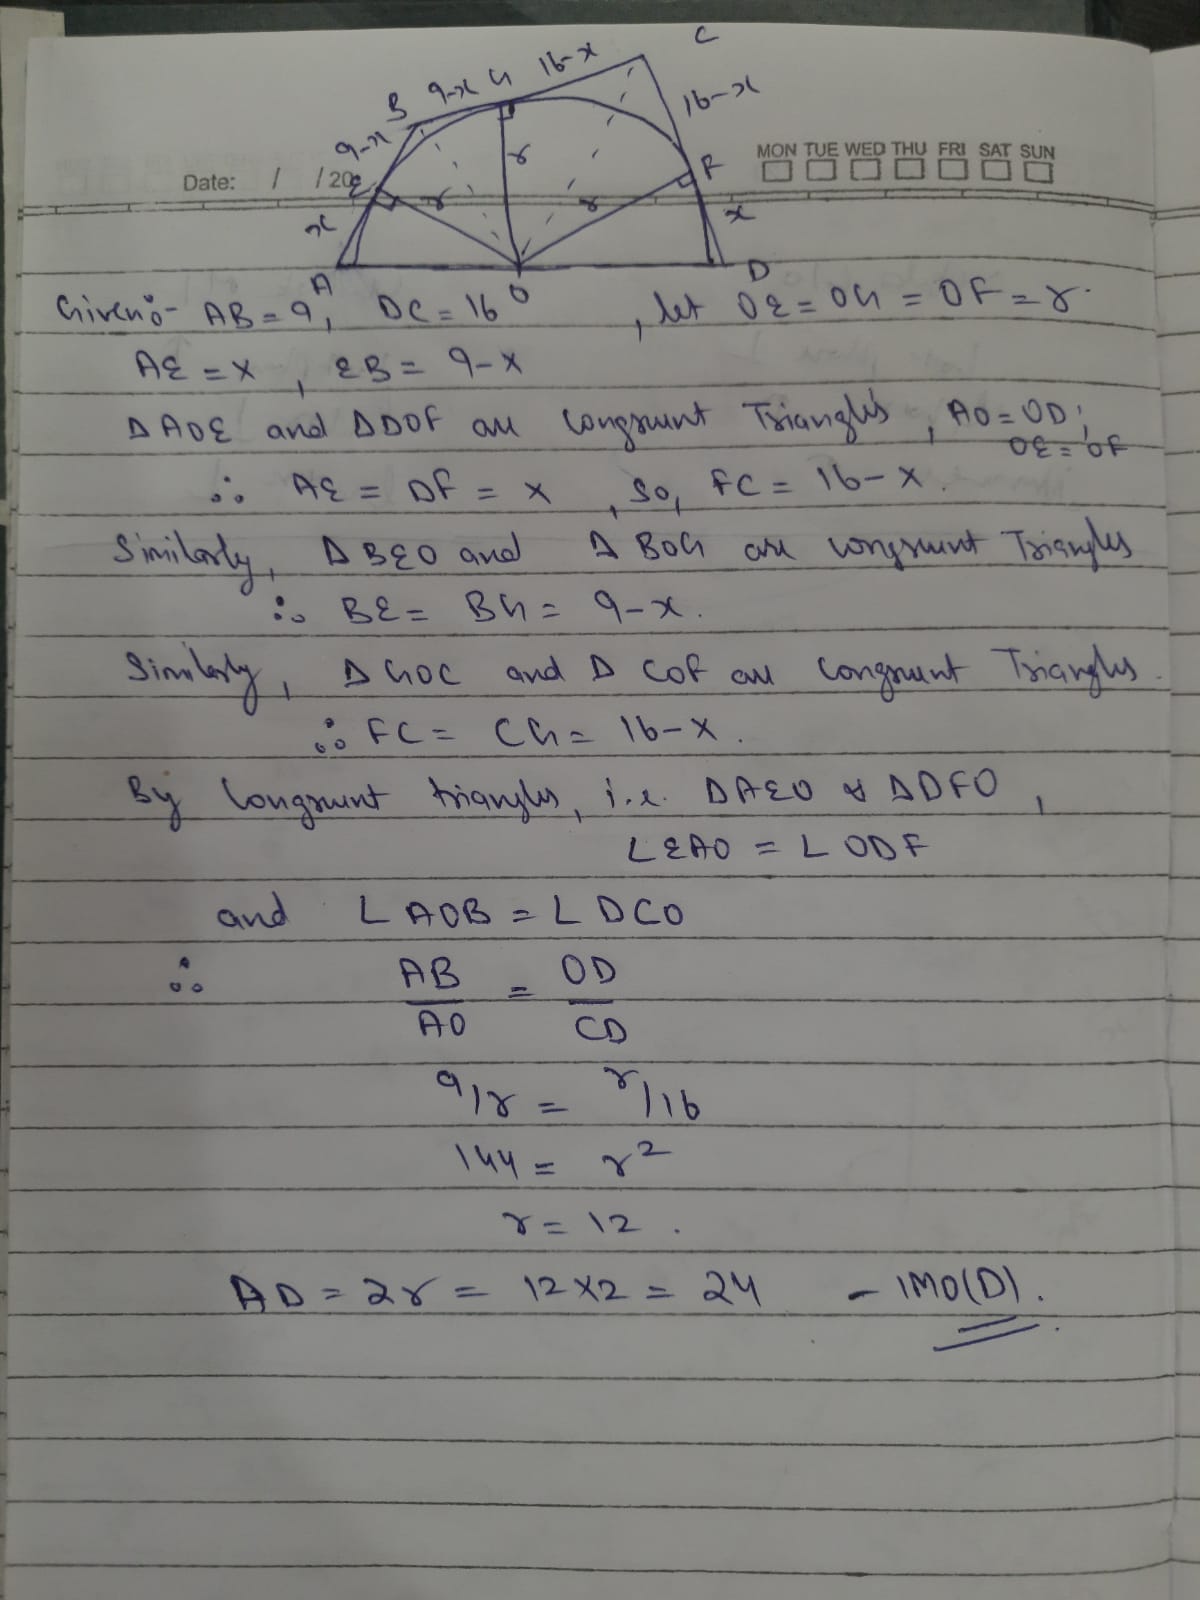 C
B 9-x G 16-x
9-x 16-x
MON TUE WED THU FRI SAT SUN
Date: / / 20
E r r r F
x x
A O D
Given:- AB = 9, DC = 16 , let OE = OG = OF = r.
AE = x , EB = 9-x
Δ AOE and Δ DOF are Congruent Triangles , AO = OD;
OE = OF
∴ AE = DF = x , So, FC = 16-x.
Similarly, Δ BEO and Δ BOG are congruent Triangles
∴ BE = BG = 9-x.
Similarly, Δ GOC and Δ COF are Congruent Triangles.
∴ FC = CG = 16-x.
By Congruent triangles, i.e. ΔAEO & ΔDFO ,
∠EAO = ∠ODF
and ∠AOB = ∠DCO
∴ AB/AO = OD/CD
9/r = r/16
144 = r²
r = 12 .
AD = 2r = 12 x2 = 24 - IMO(D).